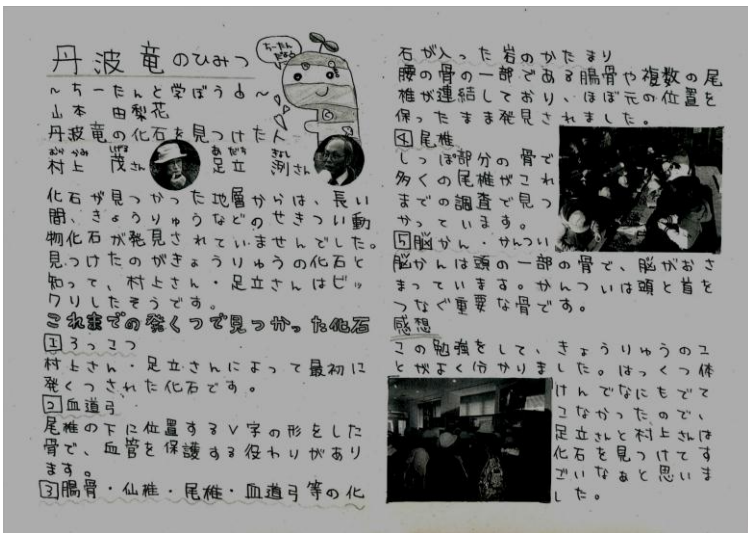 丹波竜のひみつ
ちーたんだよ
～ちーたんと学ぼう～
山本 由梨花
丹波竜の化石を見つけた人
むらかみ しげる あだち きよし
村上 茂さん 足立 洌さん
化石が見つかった地層からは、長い
間、きょうりゅうなどのせきつい動
物化石が発見されていませんでした。
見つけたのがきょうりゅうの化石と
知って、村上さん・足立さんはビッ
クリしたそうです。
これまでの発くつで見つかった化石
1ろっこつ
村上さん・足立さんによって最初に
発くつされた化石です。
2血道弓
尾椎の下に位置するV字の形をした
骨で、血管を保護する役わりがあり
ます。
3腸骨・仙椎・尾椎・血道弓等の化
石が入った岩のかたまり
腰の骨の一部である腸骨や複数の尾
椎が連結しており、ほぼ元の位置を
保ったまま発見されました。
4尾椎
しっぽ部分の骨で
多くの尾椎がこれ
までの調査で見つ
かっています。
5脳かん・かんつい
脳かんは頭の一部の骨で、脳がおさ
まっています。かんついは頭と首を
つなぐ重要な骨です。
感想
この勉強をして、きょうりゅうのこ
とがよく分かりました。はっくつ体
けんでなにもでて
こなかったので、
足立さんと村上さんは
化石を見つけてす
ごいなぁと思いま
した。